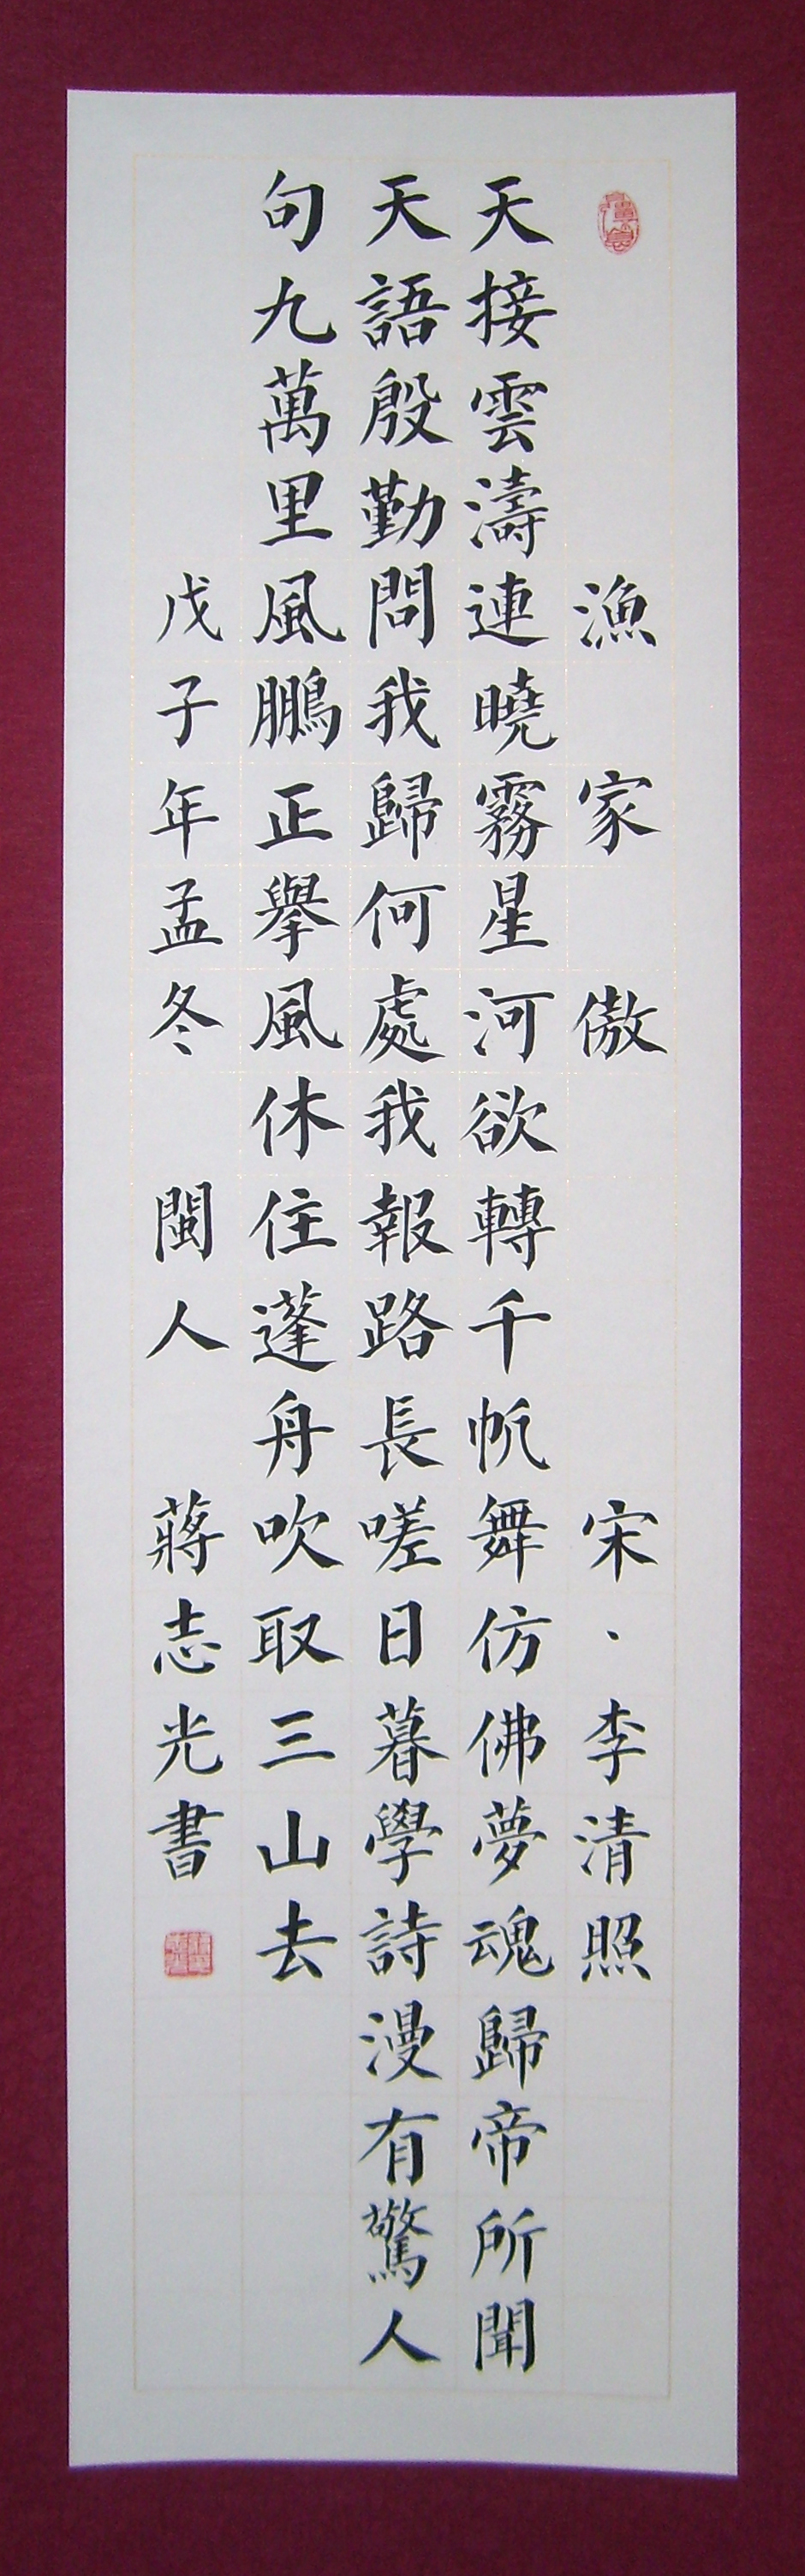 漁家傲 宋·李清照
天接雲濤連曉霧星河欲轉千帆舞仿佛夢魂歸帝所聞
天語殷勤問我歸何處我報路長嗟日暮學詩漫有驚人
句九萬里風鵬正舉風休住蓬舟吹取三山去
戊子年孟冬 閩人 蔣志光書